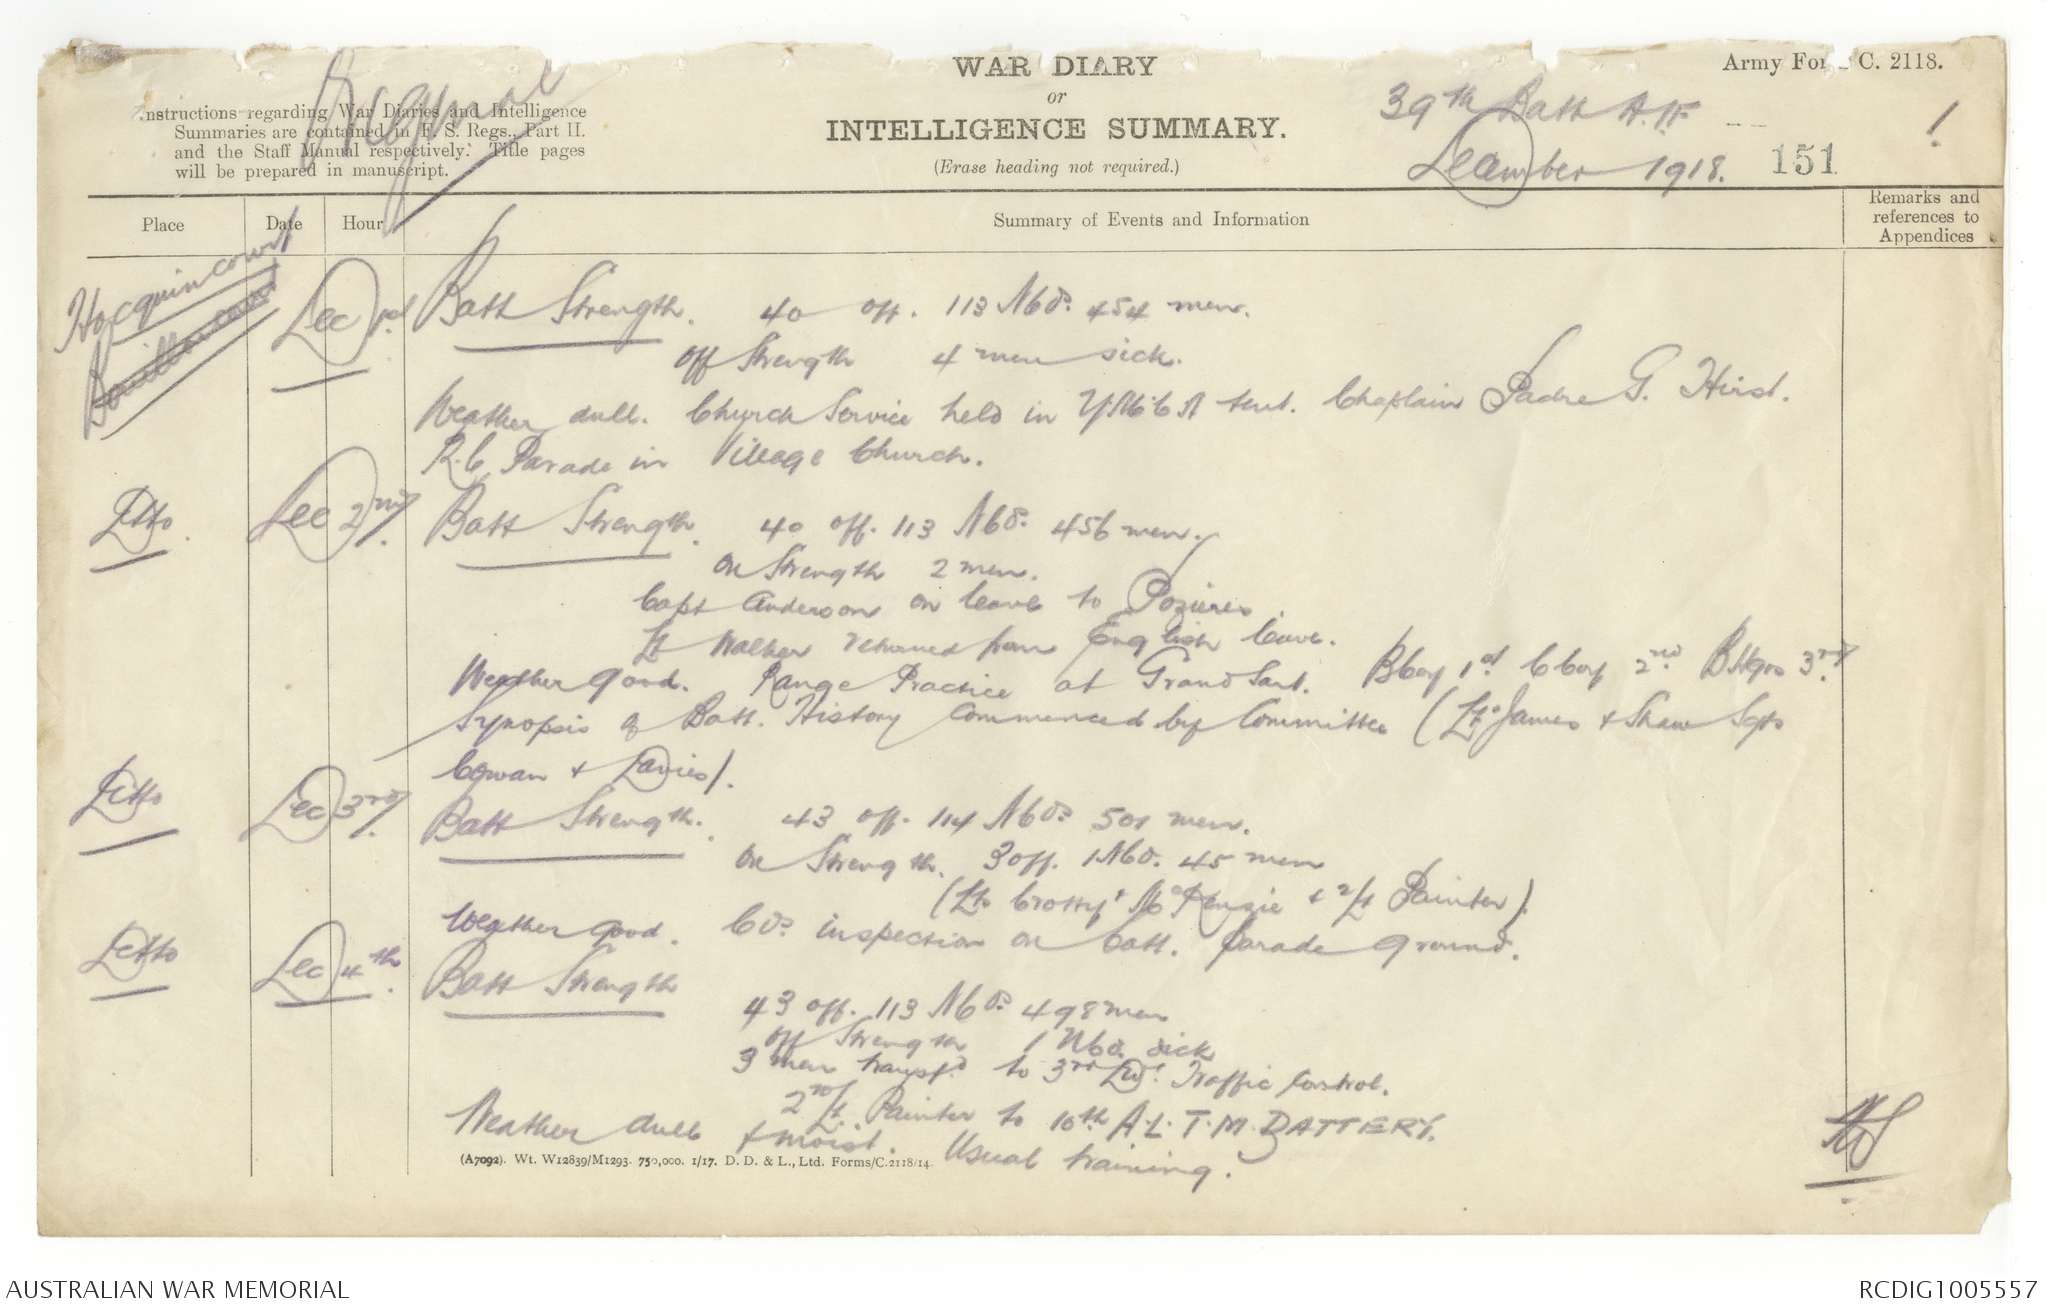 WAR DIARY
or
INTELLIGENCE SUMMARY.
(Erase heading not required.)
Army Form C. 2118.
Instructions regarding War Diaries and Intelligence
Summaries are contained in F. S. Regs., Part II.
and the Staff Manual respectively. Title pages
will be prepared in manuscript.
Original
39th Batt A.I.F.
December 1918.
151
1
Place
Date
Hour
Summary of Events and Information
Remarks and
references to
Appendices
Hocquincourt
Dec 1st
Batt Strength. 40 off. 113 NCOs. 454 men.
off Strength 4 men sick.
Weather dull. Church Service held in YMCA tent. Chaplain Padre G. Hirst.
R.C. Parade in Village Church.
Ditto.
Dec 2nd.
Batt Strength. 40 off. 113 NCOs. 456 men.
on Strength 2 men.
Capt Anderson on leave to Pozieres.
Lt Walker returned from English leave.
Weather good. Range Practice at Grandsart. B Coy 1st C Coy 2nd BHqrs 3rd.
Synopsis of Batt. History commenced by Committee (Lts James + Shaw Sgts
Cowan + Davies).
Ditto
Dec 3rd.
Batt Strength. 43 off. 114 NCOs 501 men.
on Strength. 3 off. 1 NCO. 45 men
(Lts Crotty + McKenzie + 2/Lt Painter).
Weather good. COs inspection on Batt. parade ground.
Ditto
Dec 4th.
Batt Strength
43 off. 113 NCOs 498 men
off Strength 1 NCO. sick
3 men transfd to 3rd Div. Traffic Control.
2nd/Lt. Painter to 10th A.L.T.M. BATTERY.
Weather dull + moist. Usual training.
(A7092). Wt. W12839/M1293. 750,000. 1/17. D. D. & L., Ltd. Forms/C.2118/14.
AUSTRALIAN WAR MEMORIAL
RCDIG1005557